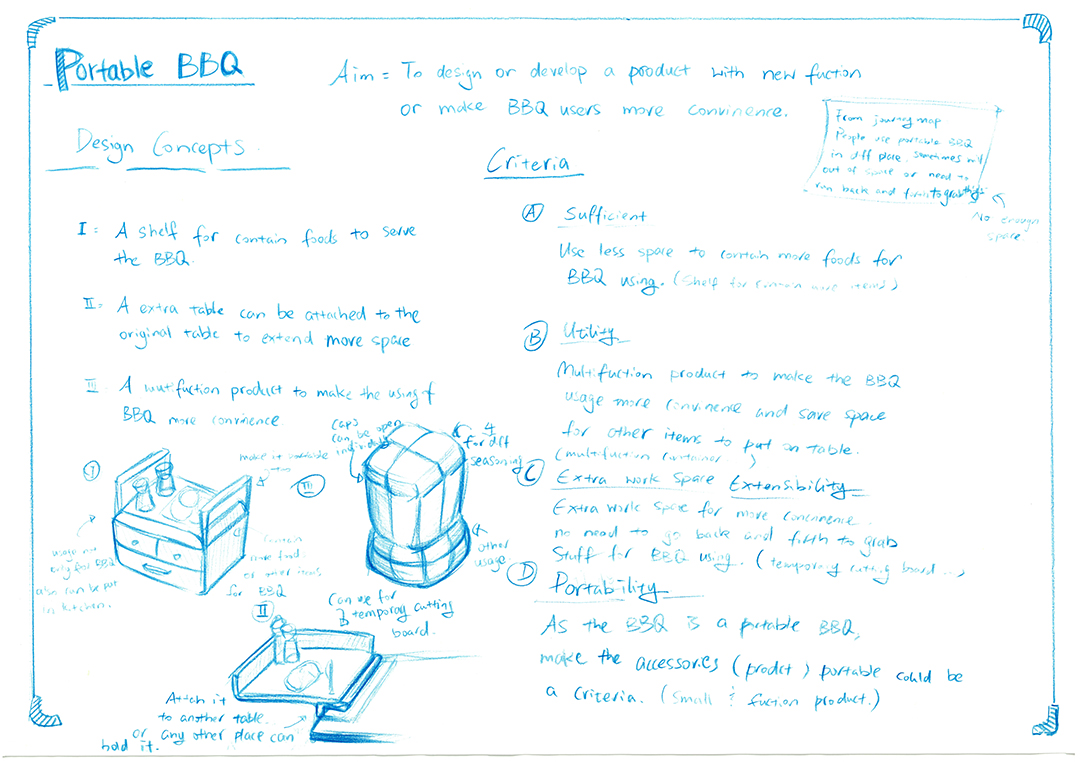 Portable BBQ
Aim = To design or develop a product with new fuction
or make BBQ users more convinence.
From journey map
People use portable BBQ
in diff place, sometimes will
out of space or need to
run back and forth to grab things
No enough
space
Design Concepts.
I = A shelf for contain foods to serve
the BBQ.
II = A extra table can be attached to the
original table to extend more space
III A mutifuction product to make the using of
BBQ more convinence.
Criteria
(A) Sufficient
Use less space to contain more foods for
BBQ using. (shelf for contain more items)
(B) Utility
Multifuction product to make the BBQ
usage more convinence and save space
for other items to put on table.
(multifuction container)
(C) Extra work space Extensibility
Extra work space for more convinence.
no need to go back and firth to grab
Stuff for BBQ using. (temporay cutting board ...)
(D) Portability
As the BBQ is a portable BBQ,
make the accessories (prodct) portable could be
a criteria. (small & fuction product.)
I
make it
usage not
only for BBQ
also can be put
in kitchen.
Contain
more food
or other items
for BBQ
III
caps
can be open
individually
4
for diff
seasoning
other
usage
II
Can use for
temporay cutting
board.
Attch it
to another table.
or any other place can
hold it.